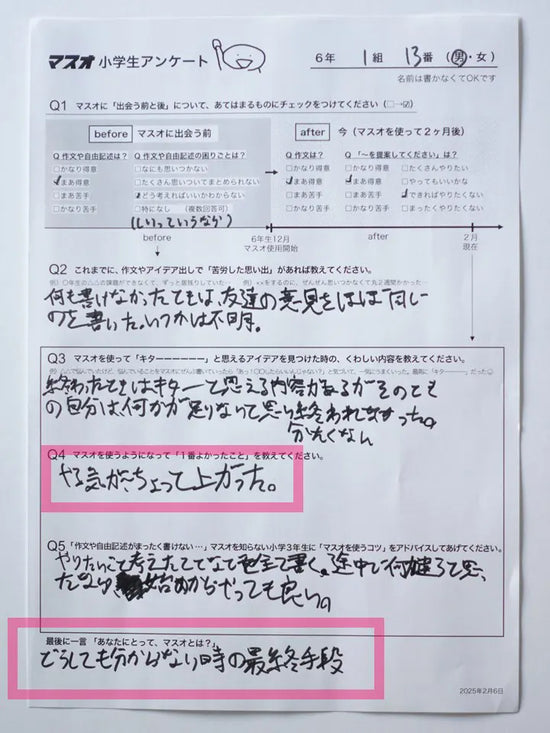 マスオ 小学生アンケート
6年 1組 13番 (男・女)
名前は書かなくてOKです
Q1 マスオに「出会う前と後」について、あてはまるものにチェックをつけてください(□→☑)
before マスオに出会う前
after 今(マスオを使って2ヶ月後)
Q 作文や自由記述は? Q 作文や自由記述の困りごとは?
Q 作文は? Q「〜を提案してください」は?
□かなり得意 □なにも思いつかない
☑まあ得意 □たくさん思いついてまとめられない
□まあ苦手 ☑どう考えればいいかわからない
□かなり苦手 □特になし (複数回答可)
(しいっていうなら)
□かなり得意 □かなり得意 □たくさんやりたい
☑まあ得意 ☑まあ得意 □やってもいいかな
□まあ苦手 □まあ苦手 ☑できればやりたくない
□かなり苦手 □かなり苦手 □まったくやりたくない
before
6年生12月
マスオ使用開始
after
2月
現在
Q2 これまでに、作文やアイデア出しで「苦労した思い出」があれば教えてください。
何も書けなかったときは、友達の意見をほぼ同じ
のを書いた。いつかは不明。
Q3 マスオを使って「キターーーーーー」と思えるアイデアを見つけた時の、くわしい内容を教えてください。
終わったときはキターと思える内容があるがそのとき
の自分は、何かが足りないて思い終われなかった。
分たくなん
Q4 マスオを使うようになって「1番よかったこと」を教えてください。
やる気が〜ちょって上がった。
Q5「作文や自由記述がまったく書けない…」マスオを知らない小学3年生に「マスオを使うコツ」をアドバイスしてあげてください。
やりたいこと考えたて
全て書く。途中で何
始めからやっても良い。
最後に一言「あなたにとって、マスオとは?」
どうしても分からない時の最終手段
2025年2月6日